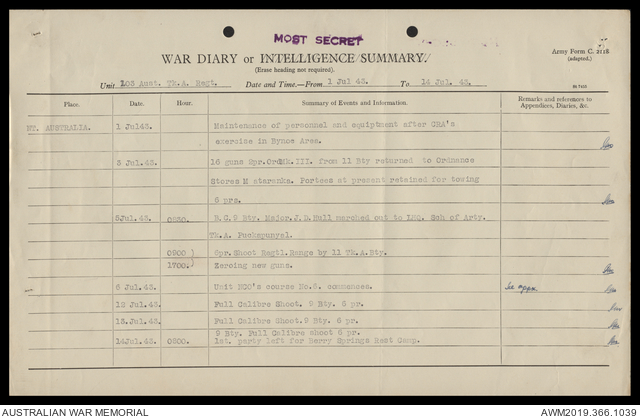 MOST SECRET
WAR DIARY or INTELLIGENCE SUMMARY.
(Erase heading not required).
Army Form C. 2118
(adapted.)
Unit 103 Aust. Tk.A. Regt. Date and Time.—From 1 Jul 43. To 14 Jul. 43.
Place. Date. Hour. Summary of Events and Information. Remarks and references to Appendices, Diaries, &c.
NT. AUSTRALIA. 1 Jul43. Maintenance of personnel and equiptment after CRA's
exercise in Bynoe Area.
3 Jul.43. 16 guns 2pr.OrdMk.III. from 11 Bty returned to Ordnance
Stores M ataranka. Portees at present retained for towing
6 prs.
5Jul.43. 0830. B.C.9 Bty. Major.J.D.Bull marched out to LHQ. Sch of Arty.
Tk.A. Puckapunyal.
0900 ) 6pr.Shoot Regtl.Range by 11 Tk.A.Bty.
1700.) Zeroing new guns.
6 Jul.43. Unit NCO's course No.6. commences. See appx.
12 Jul.43. Full Calibre Shoot. 9 Bty. 6 pr.
13.Jul.43. Full Calibre Shoot.9 Bty. 6 pr.
9 Bty. Full Calibre shoot 6 pr.
14Jul.43. 0800. 1st. party left for Berry Springs Rest Camp.
AUSTRALIAN WAR MEMORIAL AWM2019.366.1039